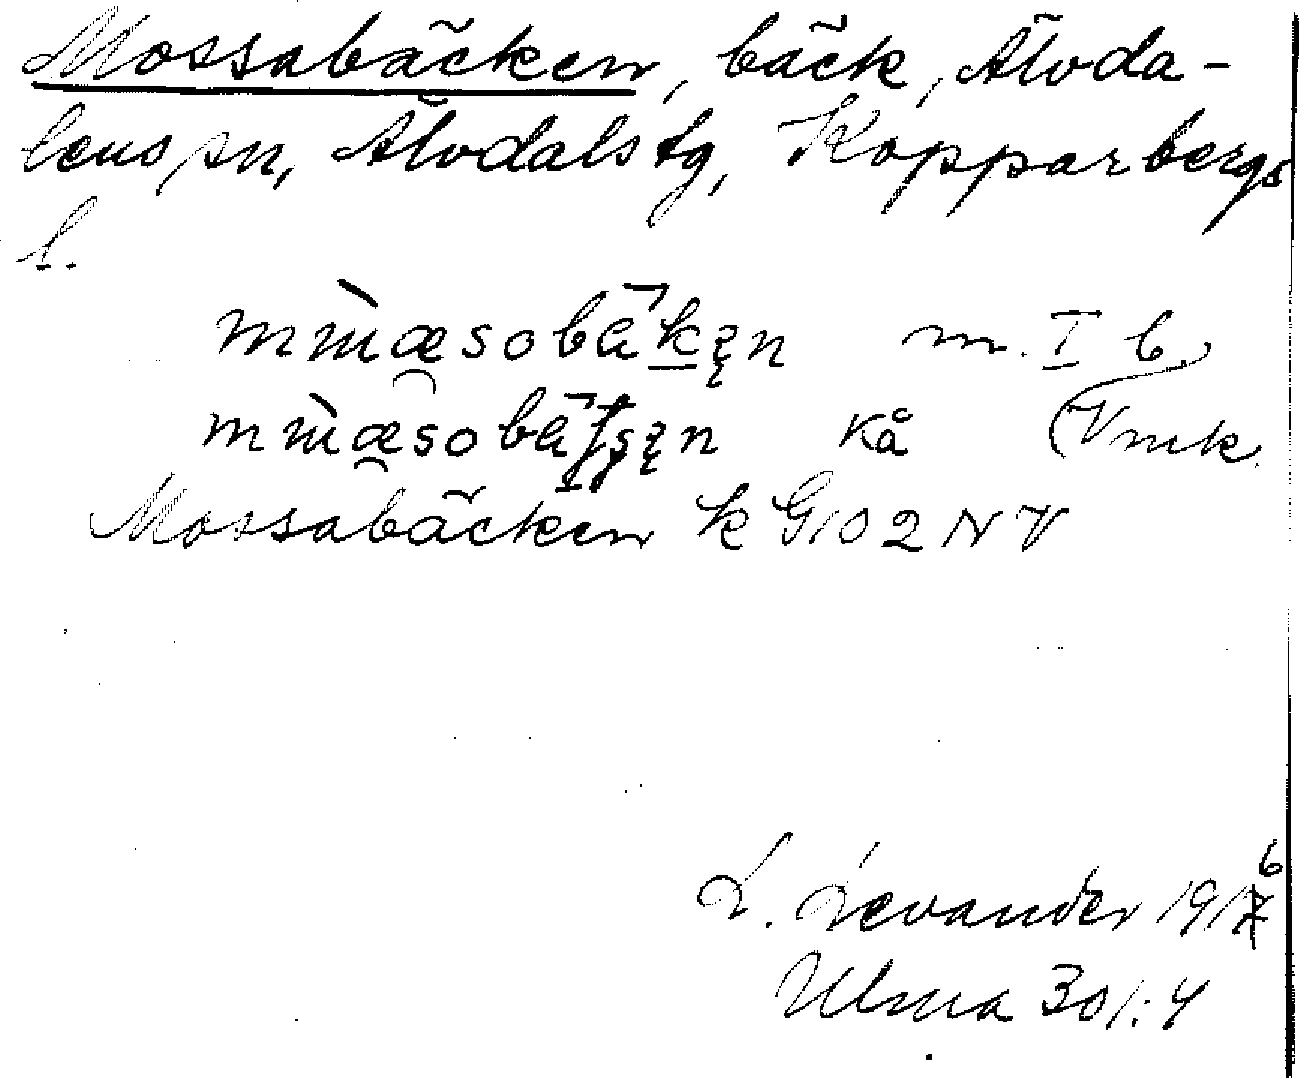 Mossabäcken, bäck, Älvda-
lens sn, Älvdals tg, Kopparbergs
l.
m. I b
kå Vmk.
Mossabäcken k G102NV
L. Levander 1916
Ulma 301:4